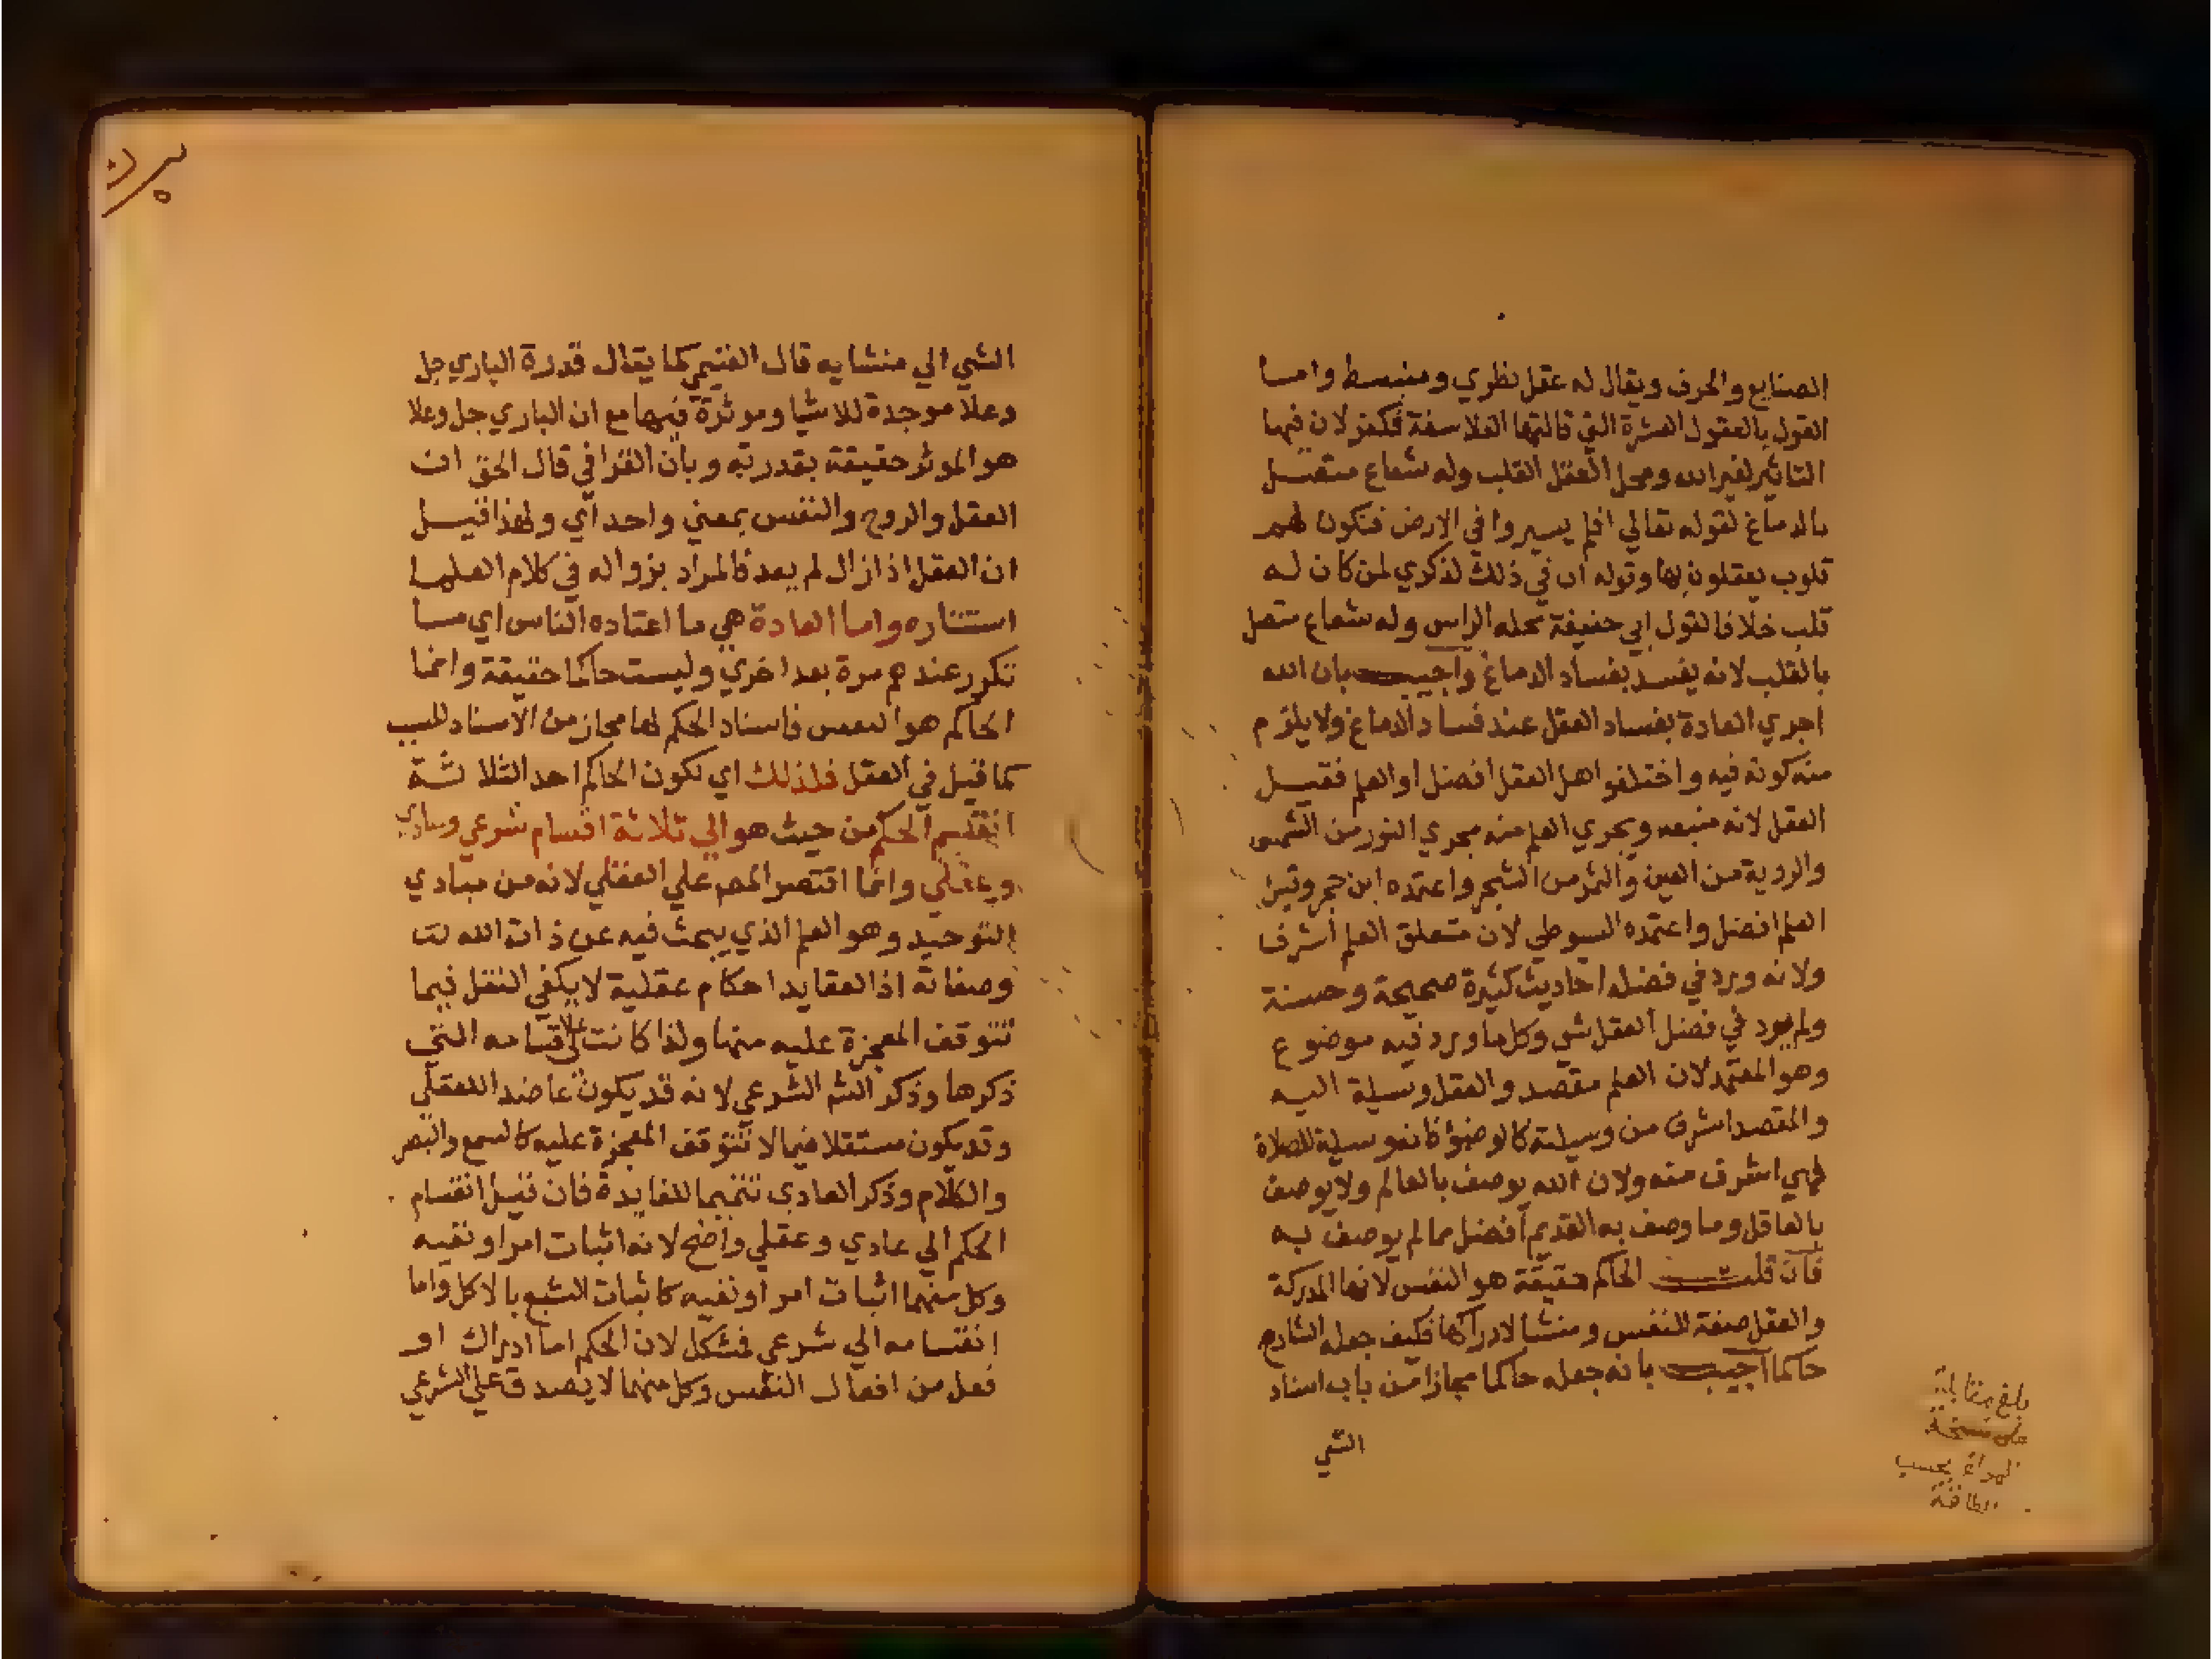 الصنايع والحرف ويقال له عقل نظري ومنبسط واما
القول بالعقول العشرة التي قالتها الفلاسفة فكفر لان فيها
التاثير لغير الله ومحل العقل القلب وله شعاع متصل
بالدماغ لقوله تعالي افلم يسيروا في الارض فتكون لهم
قلوب يعقلون بها وقوله ان في ذلك لذكري لمن كان له
قلب خلافا لقول ابي حنيفة محله الراس وله شعاع متصل
بالقلب لانه يفسد بفساد الدماغ واجيب بان الله
اجري العادة بفساد العقل عند فساد الدماغ ولا يلزم
منه كونه فيه واختلفوا هل العقل افضل او العلم فقيل
العقل لانه منبعه ويجري العلم منه مجري النور من الشمس
والروية من العين والثمر من الشجر واعتمده ابن حجر وقيل
العلم افضل واعتمده السيوطي لان متعلق العلم أشرف
ولانه ورد في فضله احاديث كثيرة صحيحة وحسنة
ولم يرد في فضل العقل شي وكل ما ورد فيه موضوع
وهو المعتمد لان العلم مقصد والعقل وسيلة اليه
والمقصد اشرف من وسيلته كالوضوء فانه وسيلة للصلاة
فهي اشرف منه ولان الله يوصف بالعالم ولا يوصف
بالعاقل وما وصف به القديم أفضل مما لم يوصف به
فان قلت الحاكم حقيقة هو النفس لانها المدركة
والعقل صفة للنفس ومنشا لادراكها فكيف جعله الشارح
حاكما اجيب بانه جعله حاكما مجازا من باب اسناد
الشي
بلغ مقابلة
على نسخة
بحسب
الطاقة
الشي الي منشايه قال الغنيمي كما يقال قدرة الباري جل
وعلا موجدة للاشيا وموثرة فيها مع ان الباري جل وعلا
هو الموثر حقيقة بقدرته وبان القرافي قال الحق ان
العقل والروح والنفس بمعني واحد اي ولهذا قيل
ان العقل اذا زال لم يعد فالمراد بزواله في كلام العلما
استتاره واما العادة هي ما اعتاده الناس اي ما
تكرر عندهم مرة بعد اخري وليست حاكما حقيقة وانما
الحاكم هو النفس فاسناد الحكم لها مجاز من الاسناد للسبب
كما قيل في العقل فلذلك اي لكون الحاكم احد الثلاثة
انقسم الحكم من حيث هو الي ثلاثة اقسام شرعي وعادي
وعقلي وانما اقتصر المص علي العقلي لانه من مبادي
التوحيد وهو العلم الذي يبحث فيه عن ذات الله تت
وصفاته اذ العقايد احكام عقلية لا يكفي النقل فيما
تتوقف المعجزة عليه منها ولذا كانت اقسامه التي
ذكرها وذكر الشرعي لانه قد يكون عاضدا للعقلي
وقد يكون مستقلا فيما لا تتوقف المعجزة عليه كالسمع والبصر
والكلام وذكر العادي تتميما للفايدة فان قيل انقسام
الحكم الي عادي وعقلي واضح لانه اثبات امر او نفيه
وكل منهما اثبات امر او نفيه كاثبات الشبع بالاكل واما
انقسامه الي شرعي فمشكل لان الحكم اما ادراك او
فعل من افعال النفس وكل منهما لا يصدق علي الشرعي